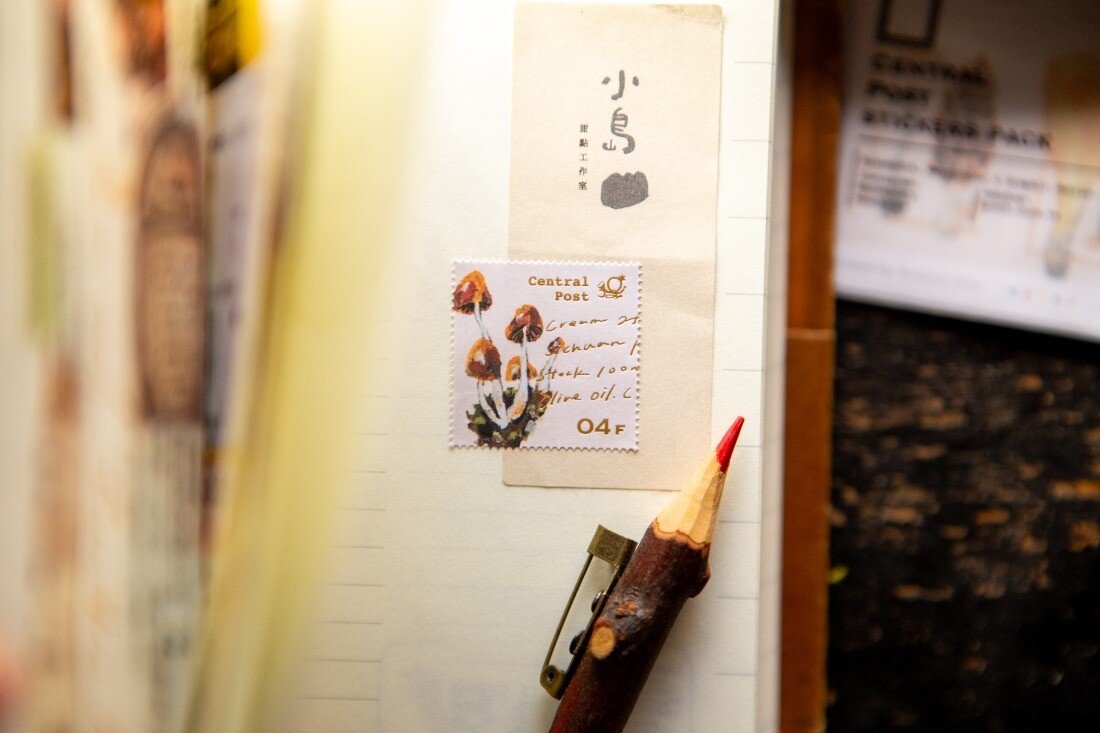 小島
甜點工作室
Central
Post
Cream
Sichuan
stock 100m
Olive oil. C
04F
CENTRAL
POST
STICKER PACK